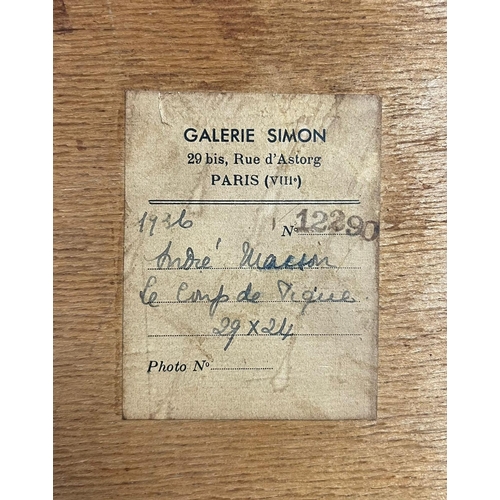 GALERIE SIMON
29 bis, Rue d'Astorg
PARIS (VIIIᵉ)
1936 Nº 12290
André Masson
Le Coup de Pique
29 x 24
Photo Nº